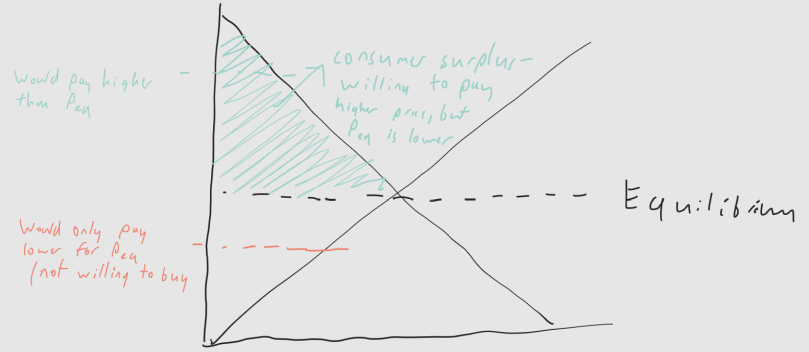 Would pay higher
than Peq
consumer surplus -
willing to pay
higher price, but
Peq is lower
Equilibrium
Would only pay
lower for Peq
(not willing to buy